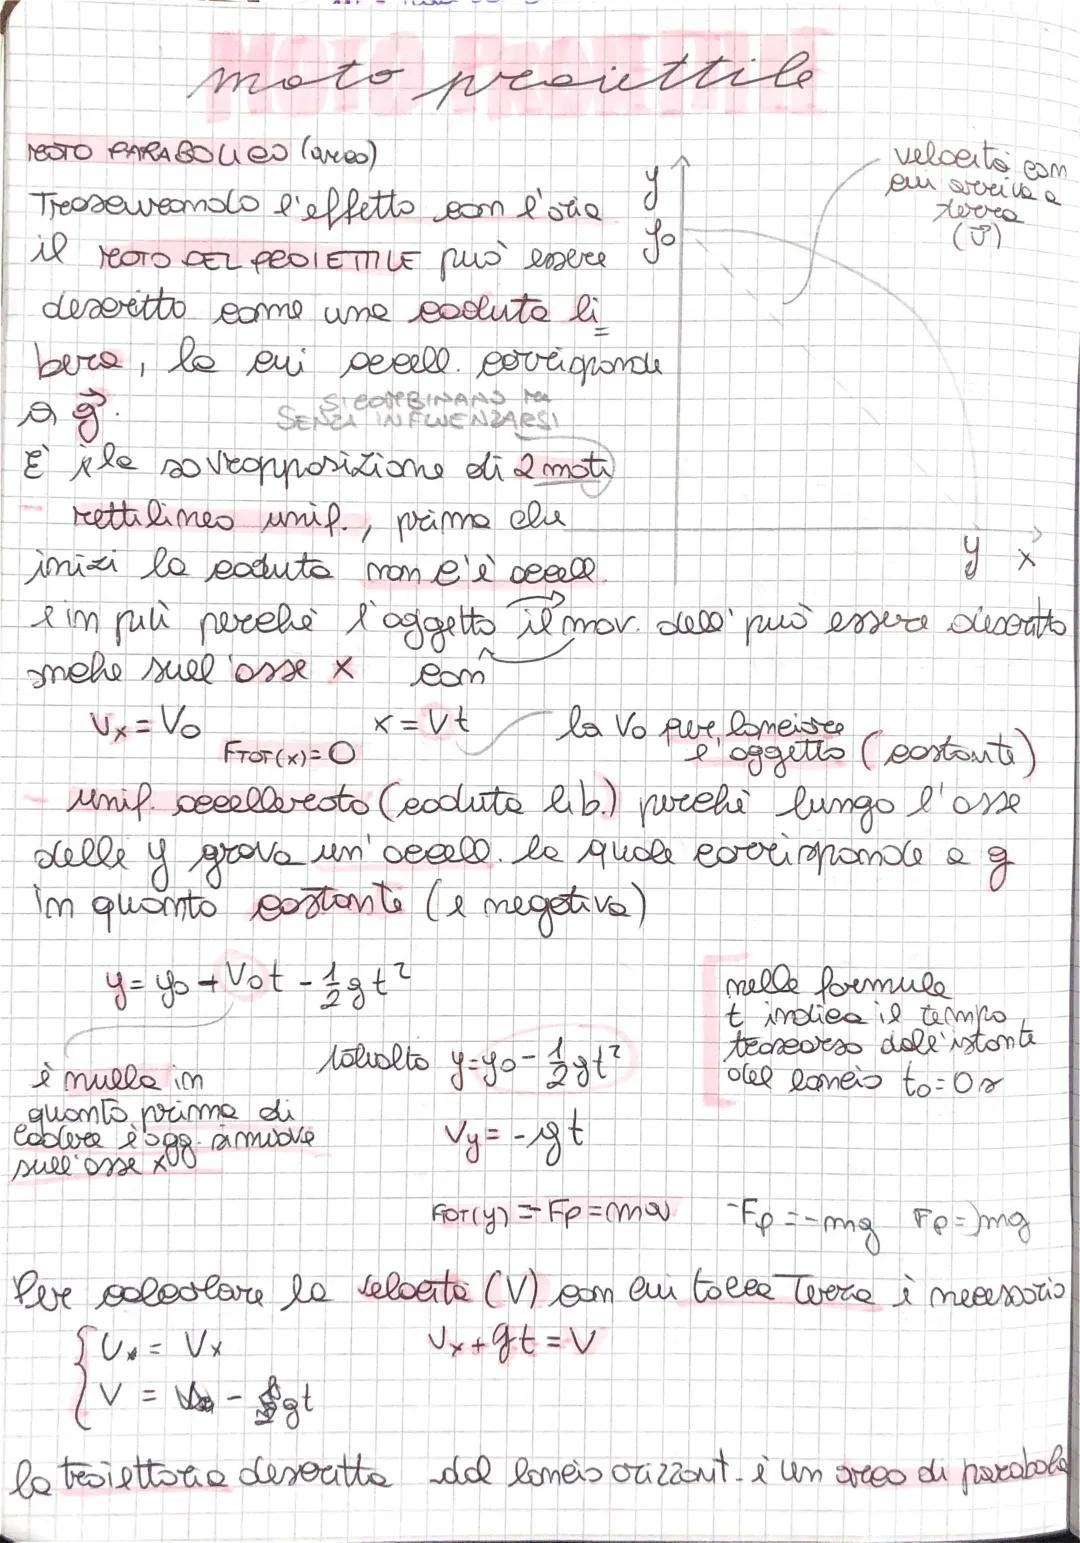 moto proiettile
MOTO PARABOLICO (arco)
Trascurando l'effetto con l'aria
il MOTO DEL PROIETTILE può essere
descritto come una caduta li=
bera, la cui accell. corrisponde
a g⃗.
SI COMBINANO MA
SENZA INFLUENZARSI
È la sovrapposizione di 2 moti
- rettilineo unif., prima che
inizi la caduta non c'è accell.
e in più perché l'oggetto il mov. dell' può essere descritto
anche sull'asse x con
Vx = V0 x = Vt la V0 per lanciare
FTOT(x) = 0 l'oggetto (costante)
- unif. accellerato (caduta lib.) perché lungo l'asse
delle y grava un'accell. la quale corrisponde a g
in quanto costante (e negativa)
y = y0 + V0t - 1/2 g t²
è nulla in
quanto prima di
cadere l'ogg. si muove
sull'asse x
talvolta y = y0 - 1/2 g t²
Vy = - g t
nella formula
t indica il tempo
trascorso dall'istante
del lancio t0 = 0 s
FTOT(y) = - Fp = ma -Fp = -mg Fp = mg
Per calcolare la velocità (V) con cui tocca Terra è necessario
Vx = Vx Vx + gt = V
V = - gt
la traiettoria descritta dal lancio orizzont. è un arco di parabola
y
y0
velocità con
cui arriva a
terra
(v⃗)
y x